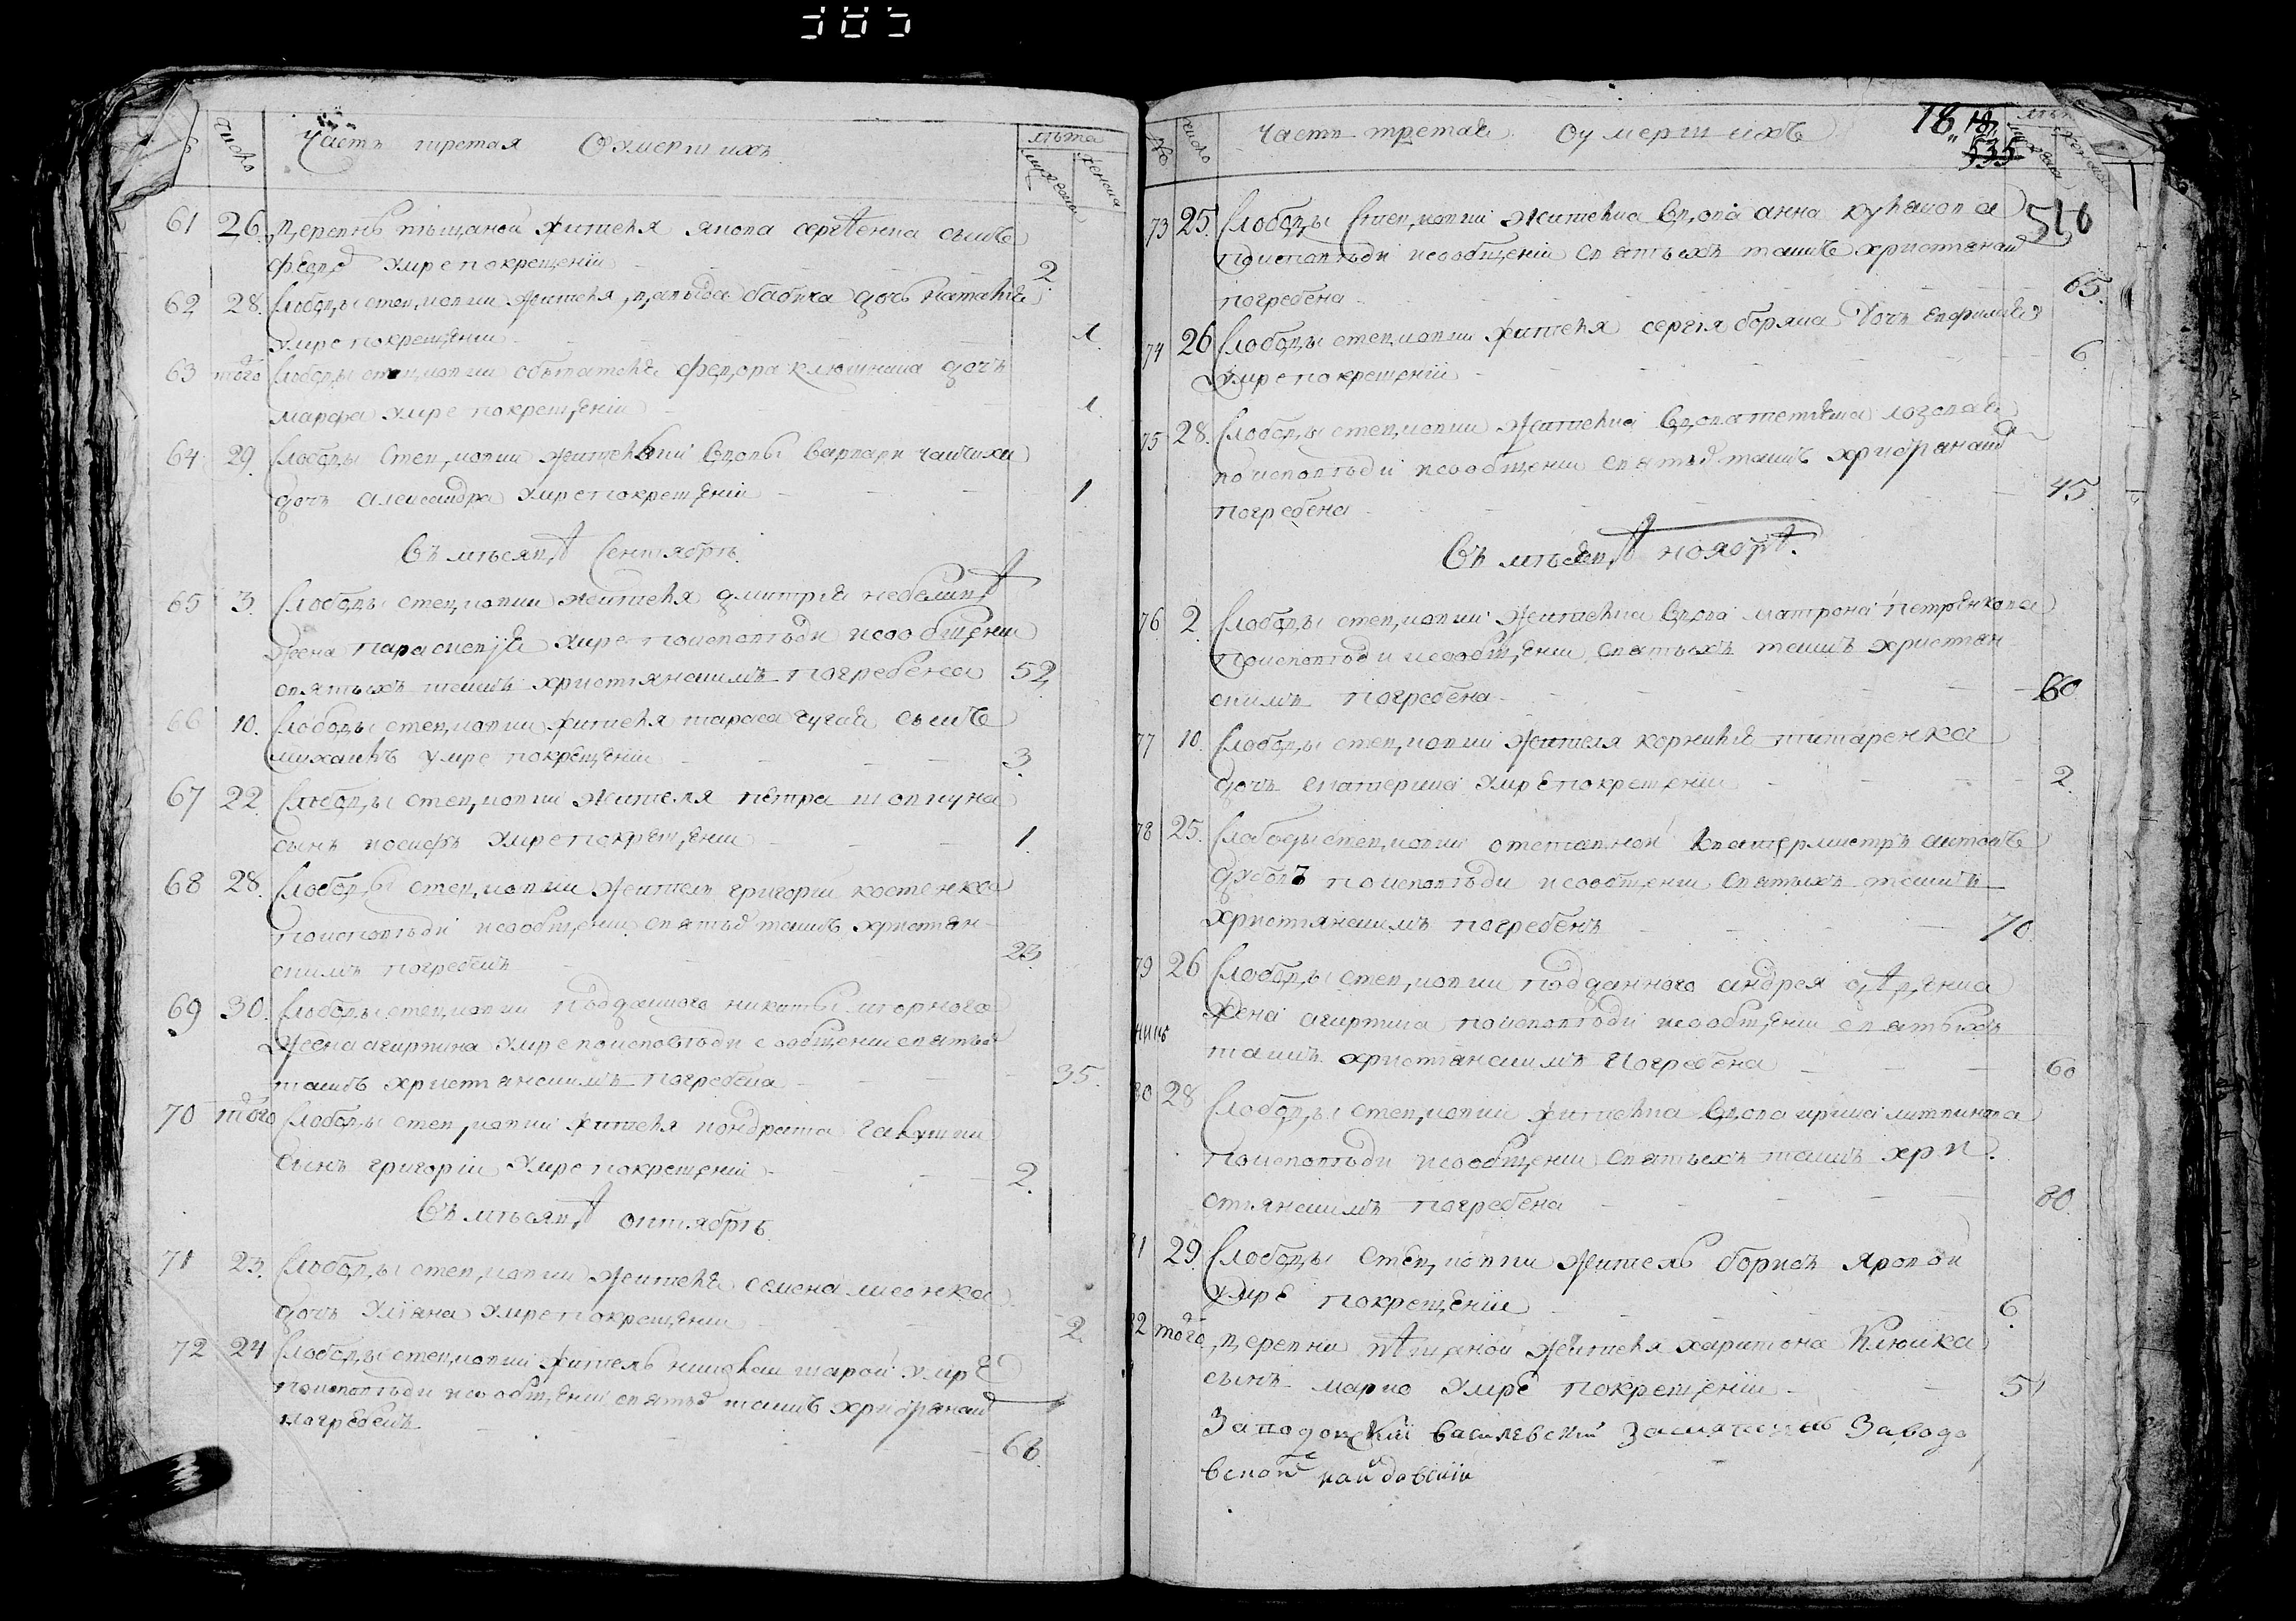 Часть третая О умершихъ
число
лѣта
мужеска
женска
61 26. деревнѣ тѣщаной жителя якова сергѣенка сынъ
федоръ умре покрещеніи 2.
62 28. Слободы степковки жителя давыда бабика дочь наталія
умре покрещеніи 1.
63 того Слободы степковки обывателя федора клюшника дочъ
марфа умре покрещеніи 1.
64 29. Слободы Степковки жителки вдовы варвари чайчихи
дочъ александра умре покрещеніи 1
Въ мѣсяцѣ Сентябрѣ.
65 3. Слободы степковки жителя дмитрія
жена параскевія умре поисповѣди исообщеніи
святыхъ таинъ христіянскимъ погребена 52.
66 10. Слободы степковки жителя тараса чугая сынъ
михаилъ умре покрещеніи 3.
67 22 Слободы степковки жителя петра шовкуна
сынъ иосифъ умре покрещеніи 1.
68 28. Слободы степковки житель григорій костенко
поисповѣди исообщеніи святых таинъ христіян-
скимъ погребенъ 23.
69 30. Слободы степковки подданного никиты чторного
жена агирпина умре поисповѣди сообщении святых
таинъ христіянскимъ погребена 35.
70 того Слободы степковки жителя кондрата
сынъ григорій умре покрещеніи 2.
Въ мѣсяцѣ октябрѣ.
71 23. Слободы степковки жителя семена лисенка
дочъ уліяна умре покрещеніи 2.
72 24 Слободы степковки житель николай шарой умре
поисповѣди исообщеніи святых таинъ христіянским
погребенъ 66.
Часть третая О умершихъ
18
535
516
№
число
73 25. Слободы Степковки жителка вдова анна
поисповѣди исообщеніи святыхъ таинъ христіянским
погребена 65.
74 26 Слободы степковки жителя сергія боряка дочъ евфимія
умре покрещеніи 6
75 28. Слободы степковки жителка вдова татіяна лозовая
поисповѣди исообщении святых таинъ христіянским
погребена 45.
Въ мѣсяцѣ ноябрѣ.
76 2 Слободы степковки жителка вдова матрона петренкова
поисповѣди исообщеніи святыхъ таинъ христіян
скимъ погребена 60.
77 10. Слободы степковки жителя корнилія титаренка
дочъ екатерина умре покрещеніи 2.
78 25. Слободы степковки отставной кватермистръ антонъ
поисповѣди исообщеніи святыхъ таинъ
христіянскимъ погребенъ 70.
79 26 Слободы степковки подданного андрея
жена агирпина поисповѣди исообщеніи святыхъ
таинъ христіянскимъ погребена 60
80 28 Слободы степковки жителка вдова ирина литвинова
поисповѣди исообщеніи святыхъ таинъ хри.
стіянскимъ погребена 80.
81 29. Слободы степковки житель борисъ яровой
умре покрещеніи 6.
82 того деревни тѣщаной жителя харитона клюшка
сынъ марко умре покрещеніи 5